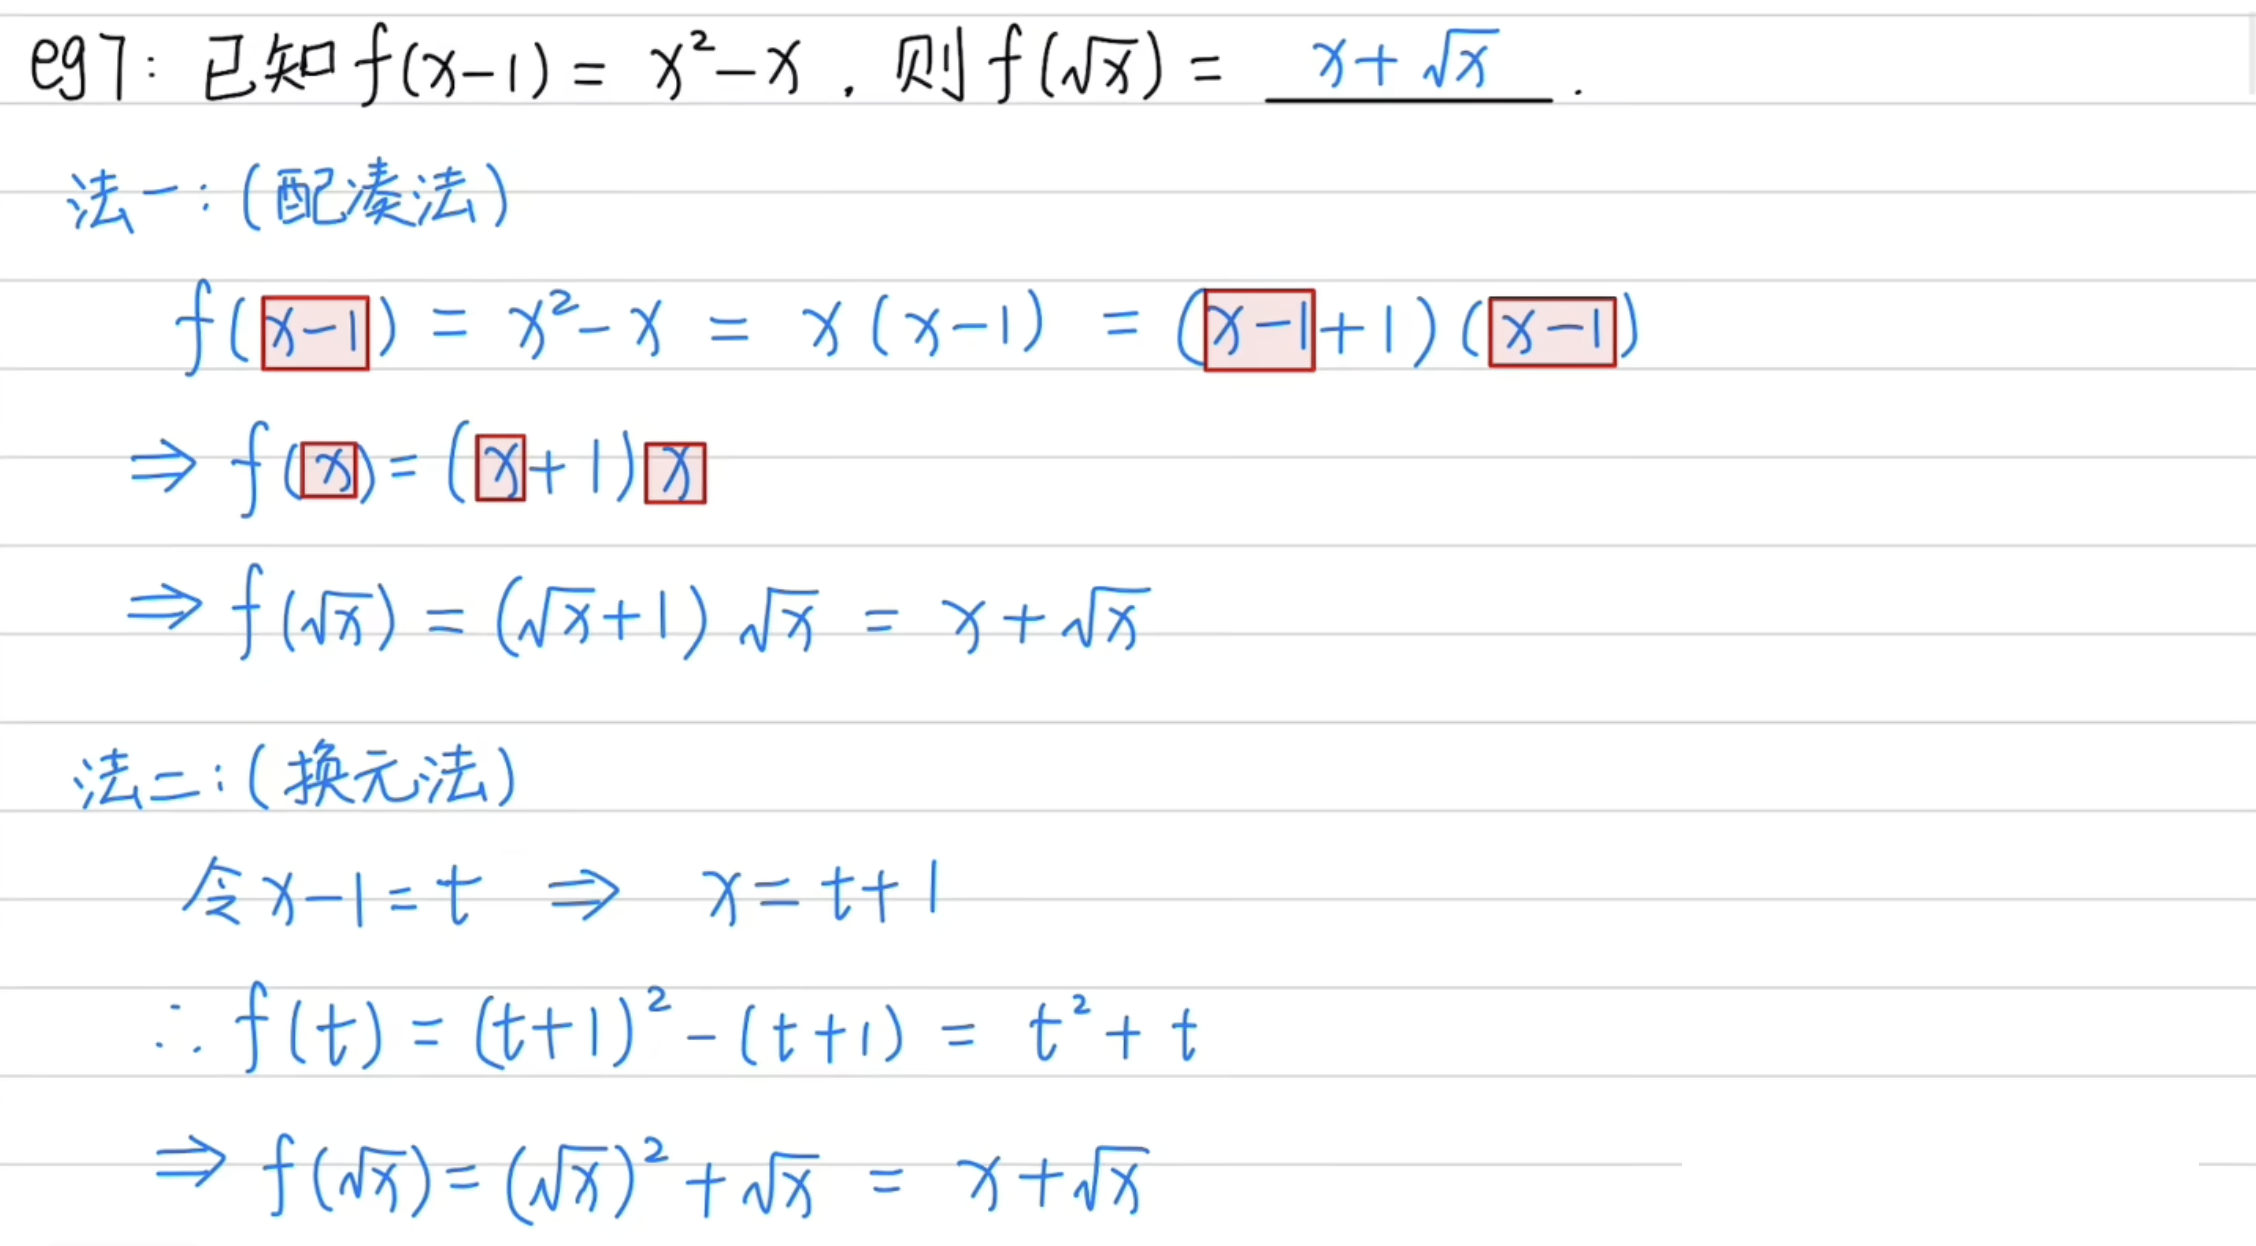 eg7: 已知f(x-1) = x²-x. 则f(√x) = x+√x.
法一:(配凑法)
f(x-1) = x²-x = x(x-1) = (x-1+1)(x-1)
⇒ f(x)=(x+1)x
⇒ f(√x) = (√x+1)√x = x+√x
法二:(换元法)
令x-1=t ⇒ x=t+1
∴ f(t) = (t+1)²-(t+1) = t²+t
⇒ f(√x)=(√x)²+√x = x+√x